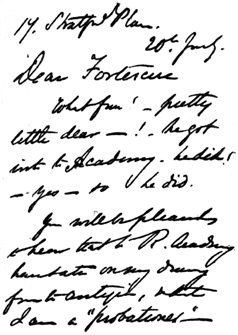 17. Stratford Place.
20th July.
Dear Fortescue
What fun! — pretty
little dear — ! he got
into the Academy. he did!
— yes — so he did.
You will be pleased
to hear that the R. Academy
have sate on my drawing
from the antique, and
I am a "probationer" —